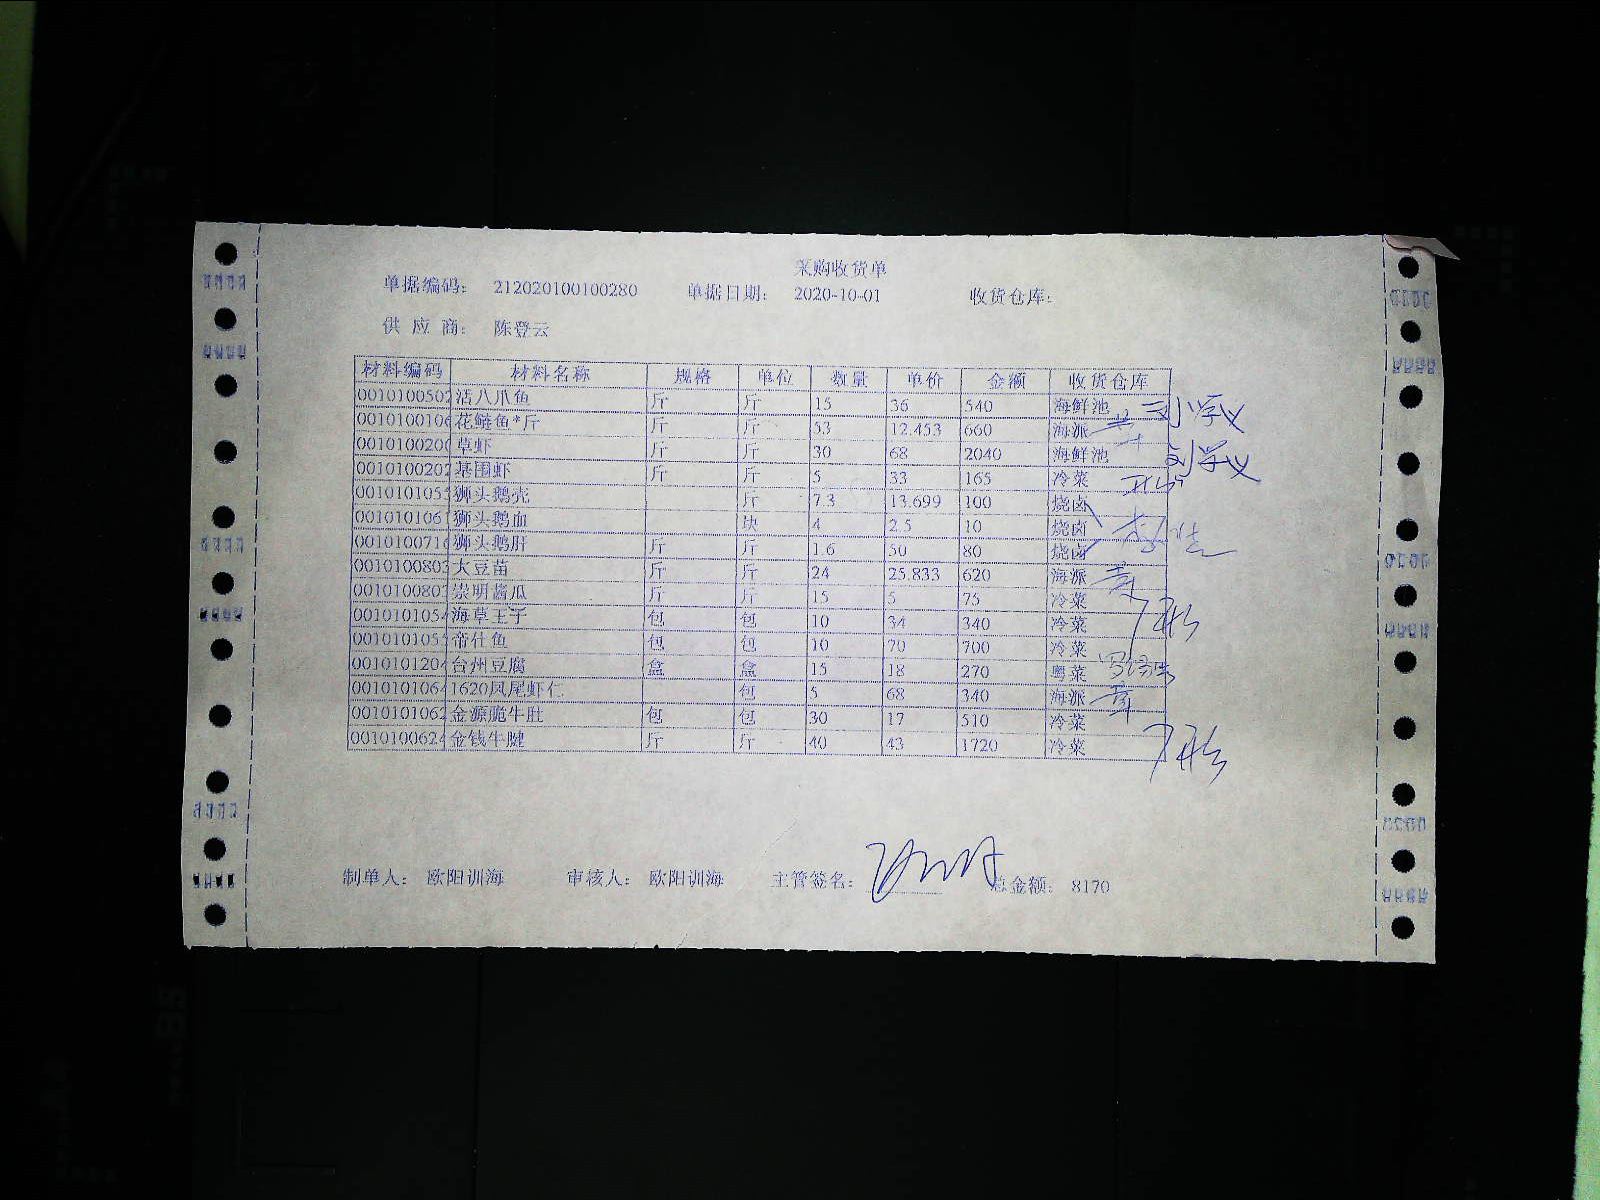 采购收货单
单据编码: 212020100100280 单据日期: 2020-10-01 收货仓库:
供 应 商: 陈登云
材料编码 材料名称 规格 单位 数量 单价 金额 收货仓库
0010100502 活八爪鱼 斤 斤 15 36 540 海鲜池
0010100106 花鲢鱼*斤 斤 斤 53 12.453 660 海派
0010100200 草虾 斤 斤 30 68 2040 海鲜池 刘学义
0010100202 基围虾 斤 斤 5 33 165 冷菜
0010101055 狮头鹅壳 斤 7.3 13.699 100 烧卤
0010101061 狮头鹅血 块 4 2.5 10 烧卤
0010100716 狮头鹅肝 斤 斤 1.6 50 80 烧卤
0010100803 大豆苗 斤 斤 24 25.833 620 海派
0010100803 崇明酱瓜 斤 斤 15 5 75 冷菜
0010101054 海草王子 包 包 10 34 340 冷菜
0010101055 帝仕鱼 包 包 10 70 700 冷菜
0010101204 台州豆腐 盒 盒 15 18 270 粤菜
0010101064 1620凤尾虾仁 包 5 68 340 海派
0010101062 金源脆牛肚 包 包 30 17 510 冷菜
0010100624 金钱牛腱 斤 斤 40 43 1720 冷菜
制单人: 欧阳训海 审核人: 欧阳训海 主管签名: 总金额: 8170